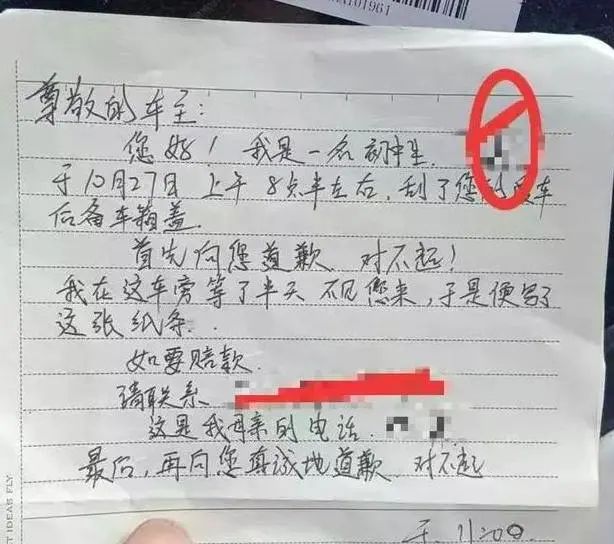 A101961
尊敬的车主:
您好!我是一名初中生
于10月27日上午8点半左右,刮了您的爱车
后备车箱盖.
首先向您道歉.对不起!
我在这车旁等了半天不见您来,于是便写了
这张纸条.
如要赔款.
请联系
这是我母亲的电话.
最后,再向您真诚地道歉.对不起
于.11:20
T IDEAS FLY